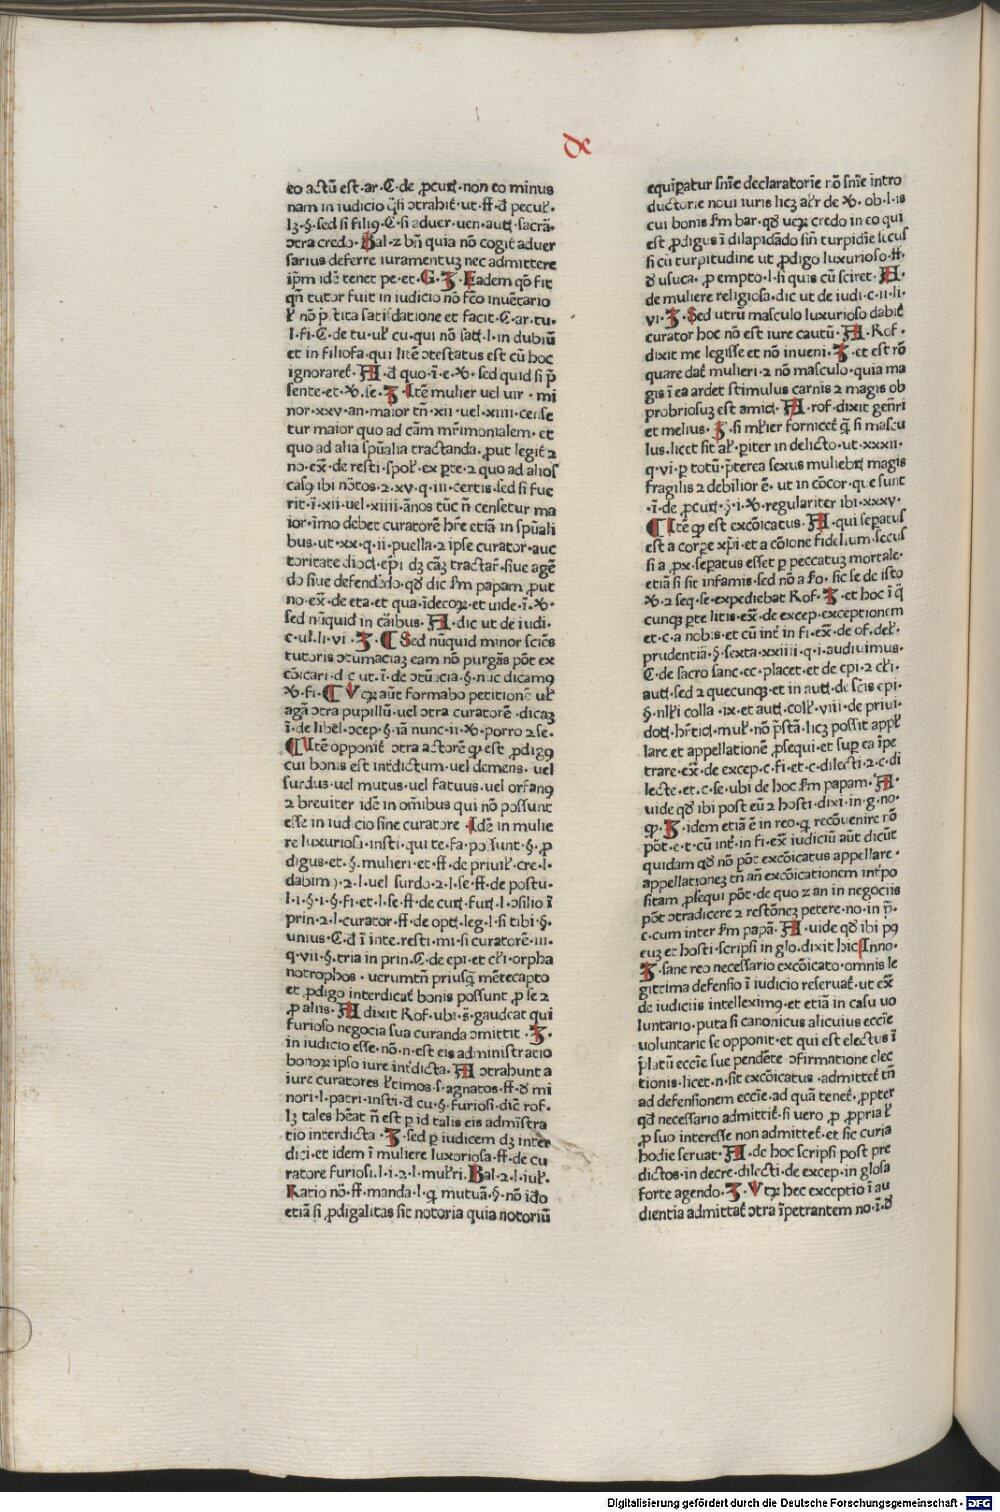 de
eo actū est·ar·C·de ꝓcur̄·non eo minus
nam in iudicio q̄si ↄtrahit̄·ut·ff·d̄ pecul̄·
lꝫ·§·sed si filiꝰ·C·si aduer·uen·aut̄·sacrā·
ↄtra credo·Bal·⁊ bn̄ quia nō cogit̄ aduer
sarius deferre iuramentuꝫ nec admittere
ip̄m idē tenet pe·et·G·Ʒ·Eadem qō fit
qn̄ tutor fuit in iudicio nō fc̄o inuētario
ul̄ nō p̄stita satisdatione et facit·C·ar·tu·
l·fi·C·de tu·ul̄ cu·qui nō sat̄·l·in dubiū
et in filiofa·qui litē ↄtestatus est cū hoc
ignoraret̄·A·d̄ quo·ī·e·℣·sed quid si p̄
sente·et·℣·se·Ʒ·Itē mulier uel uir·mi
nor·xxv·an·maior tn̄·xii·uel·xiiii·cense
tur maior quo ad cām mr̄imonialem·et
quo ad alia spūalia tractanda·ꝓut legit̄ ⁊
no·ex̄·de resti·spol̄·ex ꝑte·⁊ quo ad alios
casꝰ ibi nōtos·⁊·xv·q·iii·certis·sed si fue
rit·ī·xii·uel·xiiii·ānos tūc n̄ censetur ma
ior·īmo debet curatorē hr̄e etiā in spūali
bus·ut·xx·q·ii·puella·⁊ ipse curator·auc
toritate dioc̄·ep̄i dꝫ cāꝫ tractar̄·siue agē
do siue defendēdo·qd̄ dic fm papam ꝓut
no·ex̄·de eta·et qua·īdecorꝝ·et uide·ī·℣·
sed nūquid in cāibus·A·dic ut de iudi·
c·ul·li·vi·Ʒ·Sed nūquid minor sciēs
tutoris ↄtumaciaꝫ eam nō purgās pōt ex
cōicari·dic ut·ī·de ↄtūacia·§·nūc dicamꝰ
℣·fi·Vtꝝ aūt formabo petitionē ul̄
agā ↄtra pupillū·uel ↄtra curatorē·dicaꝫ
ī·de libel·ↄcep·§·iā nunc·ii·℣·porro ⁊ se·
Itē opponit̄ ↄtra actorē qꝫ est ꝓdigꝰ
cui bonis est int̄dictum·uel demens·uel
surdus·uel mutus·uel fatuus·uel orfanꝰ
⁊ breuiter idē in om̄ibus qui nō possunt
esse in iudicio sine curatore·Idē in mulie
re luxuriosa·insti·qui te·fa·possunt·§·ꝓ
digus·et·§·mulieri·et·ff·de priuil̄·cre·l·
dabimꝰ·⁊·l·uel surdo·⁊·l·se·ff·de postu·
l·i·§·i·§·fi·et·l·se·ff·de cur̄·fur̄·l·ↄsilio ī
prin·⁊·l·curator·ff·de opt̄·leg·l·si tibi·§·
unius·C·d̄ ī inte.resti·mi·si curatorē·iii·
q·vii·§·tria in prin.C·de epi·et cl̄i·orpha
notrophos·uerumtn̄ priusꝗ mētecapto
et ꝓdigo interdicat̄ bonis possunt ꝓ se ⁊
ꝓ aliis·A dixit Rof·ubi·s̄·gaudeat qui
furioso negocia sua curanda ↄmittit·Ʒ·
in iudicio esse·nō·n·est eis administratio
bonoꝝ ipso iure int̄dicta·A ↄtrahunt a
iure curatores l̄timos·s·agnatos·ff·d̄ mi
nori·l·patri·insti·d̄ cu·§·furiosi·dic̄ rof·
lꝫ tales hēat n̄ est ꝑ id talis eis admīstra
tio interdicta·Ʒ·sed ꝑ iudicem dꝫ inter
dici·et idem ī muliere luxoriosa·ff·de cu
ratore furiosi.l·i·⁊·l·mul̄ri.Bal·⁊·l·iul̄·
Ratio nō·ff·manda·l·q̄ mutuā·§·nō ido
etiā si ꝓdigalitas sit notoria quia notoriū
equiꝑatur snīe declaratorīe rō snīe intro
ductorie noui iuris licꝫ al̄r de ℣·ob·l·is
cui bonis fm bar·qd̄ ueꝝ credo in eo qui
est ꝓdigus ī dilapidādo sin̄ turpidīe secus
si cū turpitudine ut ꝓdigo luxurioso·ff·
d̄ usuca·ꝓ empto·l·si quis cū sciret·A·
de muliere religiosa·dic ut de iudi·c·ii·li·
vi·Ʒ·Sed utrū masculo luxurioso dabit̄
curator hoc nō est iure cautū·A·Rof·
dixit me legisse et nō inueni·Ʒ·et est rō
quare dat̄ mulieri·⁊ nō masculo·quia ma
gis ī ea ardet stimulus carnis ⁊ magis ob
probriosuꝫ est amici·A·rof·dixit gen̄ri
et melius·Ʒ·si ml̄ier fornicet̄ q̄ si mascu
lus·licet sit al̄·ꝑiter in delicto·ut·xxxii·
q·vi·ꝑ totū·p̄terea sexus muliebꝝ magis
fragilis ⁊ debilior ē·ut in cōcor·que sunt
·ī·de ꝓcur̄·§·i·℣·regulariter ibi·xxxv·
Itē qꝫ est excōicatus·A·qui seꝑatus
est a corꝑe xp̄i·et a cōione fidelium·secus
si a ꝓx·seꝑatus esset ꝑ peccatuꝫ mortale·
etiā si sit infamis·sed nō a fo·sic se de isto
℣·⁊ seq·se·expediebat Rof·Ʒ·et hoc ī q̄
cunqꝫ ꝑte litis·ex̄·de excep·exceptionem
et·c·a nobis·et cū int̄ in fi·ex̄·de of·del̄·
prudentiā·§·sexta·xxiiii·q·i·audiuimus·
C·de sacro sanc·ec·placet·et de epi·⁊ cl̄i·
aut̄·sed ⁊ quecunqꝫ·et in aut̄·de scīs epi·
§·nl̄i colla·ix·et aut̄·coll̄·viii·de priui·
dot̄·hr̄ticl·mul̄·nō p̄stā·licꝫ possit appl̄
lare et appellationē ꝓsequi·et suꝑ ea īpe
trare·ex̄·de excep·c·fi·et·c·dilecti·⁊·c·di
lecte·et·c·se·ubi de hoc fm papam·A·
uide qd̄ ibi post eū ⁊ hosti·dixi·in·g·no·
qꝫ·Ʒ·idem etiā ē in reo·q̄ recōuenire rō
pōt·e·t·cū int̄·in fi·ex̄ iudiciū aūt dicūt
quidam qd̄ nō pōt excōicatus appellare·
appellationeꝫ tn̄ an̄ excōicationem int̄po
sitam ꝓsequi pōt·de quo ⁊ an in negociis
pōt ↄtradicere ⁊ restōneꝫ petere·no·in p̄·
c·cum inter fm papā·A·uide qd̄ ibi pꝰ
euꝫ et hosti·scripsi in glo·dixit hic Inno·
Ʒ·sane reo necessario excōicato·omnis le
gittima defensio ī iudicio reseruat̄·ut ex̄
de iudiciis intelleximꝰ·et etiā in casu uo
luntario·puta si canonicus alicuius eccīe
uoluntarie se opponit·et qui est electus ī
p̄latū eccīe sue pendēte ↄfirmatione elec
tionis·licet·n·sit excōicatus·admittet̄ tn̄
ad defensionem eccīe·ad quā tenet̄·ꝓpter
qd̄ necessario admittit̄·si uero ꝓ ꝓpria ul̄
ꝓ suo interesse non admittet̄·et sic curia
hodie seruat·A·de hoc scripsi post pre
dictos·in decre·dilecti·de excep·in glosa
forte agendo·Ʒ·Vtꝝ hec exceptio ī au
dientia admittat̄ ↄtra īpetrantem no·ī·d̄
Digitalisierung gefördert durch die Deutsche Forschungsgemeinschaft · DFG